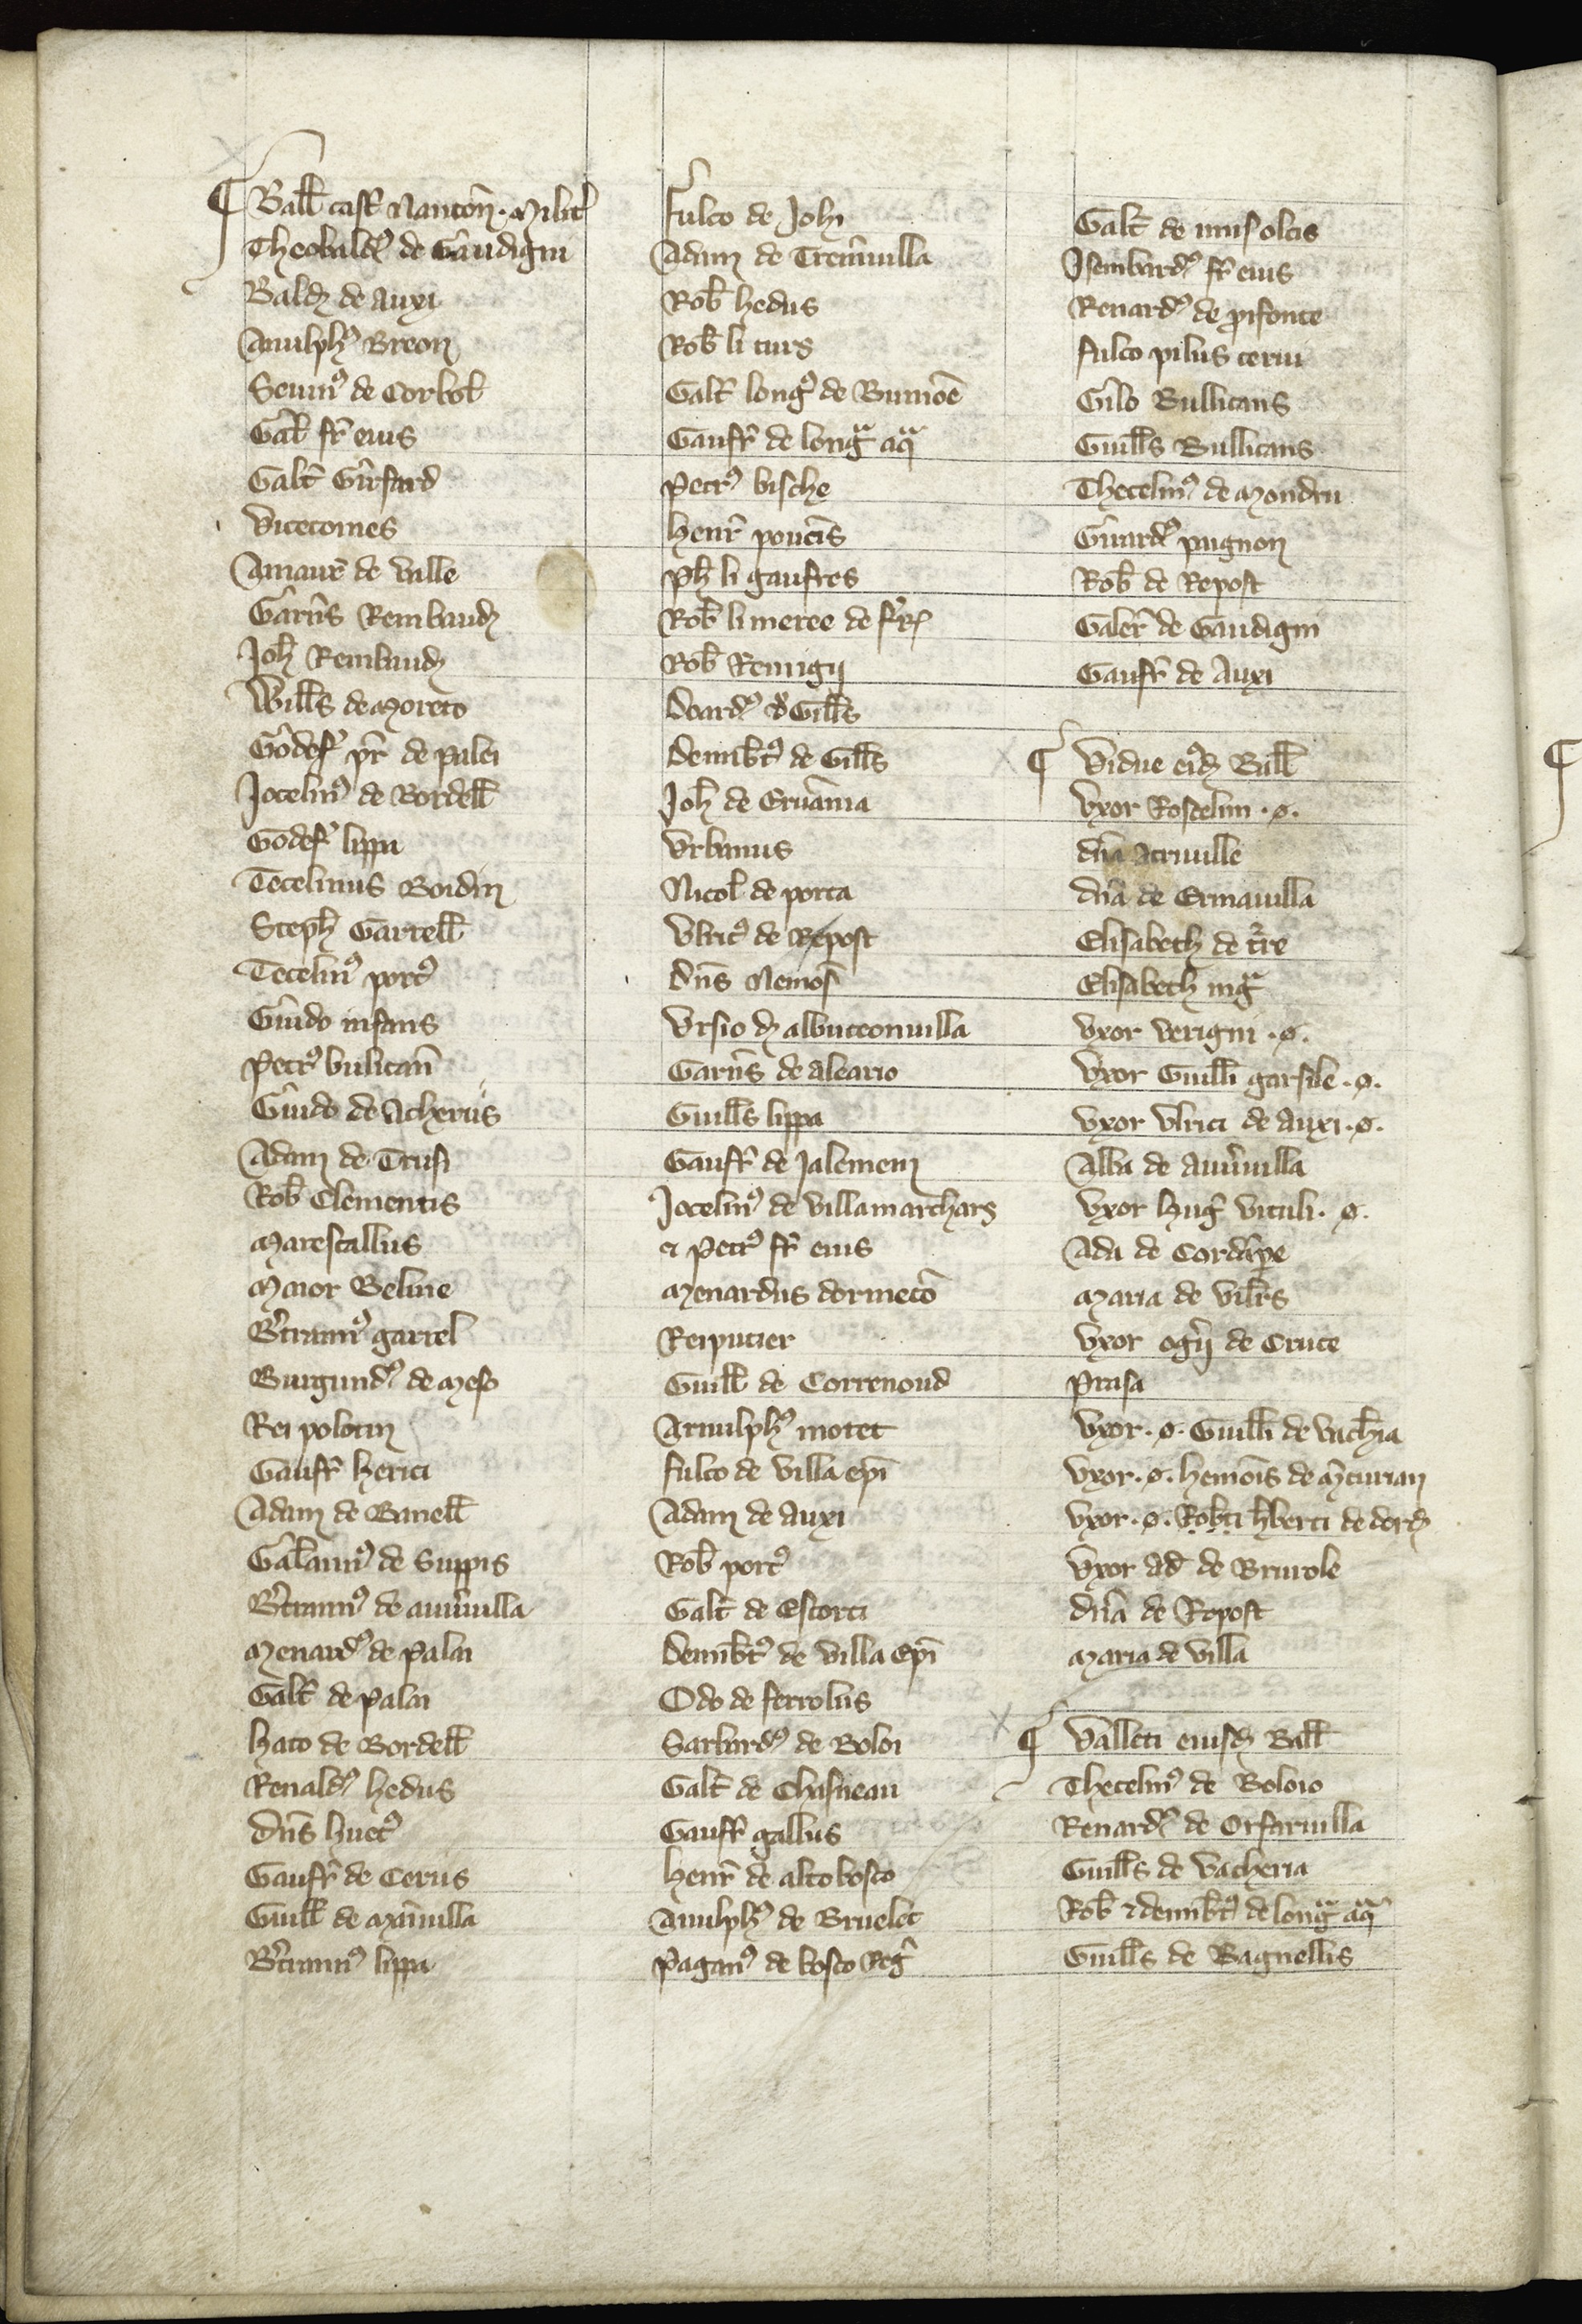 ¶ Ball cast Nanton. Milit
Theobald de Gaudigni
Bald de Auxi
Anulph Breon
Seuin de Corbol
Gal fr eius
Galt Girfard
Vicecomes
Amaur de Valle
Garns Rembaud
Joh Rembaud
Wills de Moreto
Godef pr de Palei
Jocelin de Bordell
Godef lippa
Tecelinus Boidin
Steph Gartell
Tecelin port
Guido infans
Petr bulican
Guido de Acheriis
Adam de Trusi
Rob Clementis
Marescallus
Maior Beline
Bertrann gartel
Burgund de Meso
Rei polotin
Gaufr herici
Adam de Banell
Galerann de Suppis
Bertrann de Auviuilla
Menard de Palai
Galt de Palai
Hato de Bordell
Renald hedus
Dns huet
Gaufr de Ceriis
Guill de Maxinuilla
Bertrann lippa
Fulco de Johi
Adam de Treminuilla
Rob hedus
Rob li turs
Galt long de Bunioe
Gaufr de longa aqa
Petr bische
Henr poucins
Ph li gaufres
Rob li meree de
Rob Remigii
Doard de Gills
Denibt de Gills
Joh de Eruania
Urbanus
Nicol de porta
Ulric de Repost
Dns Nemos
Ursio d albuteonuilla
Garns de aleario
Guills lippa
Gaufr de Jalemein
Jocelin de villamarchars
et Petr fr eius
Menardus dormeto
Reiputier
Guill de Correnoud
Arnulph motet
Fulco de villa epi
Adam de Auxi
Rob port
Galt de Escorci
Denibt de villa epi
Odo de ferroliis
Sarburd de Boloi
Galt de Chasneau
Gaufr gallus
Henr de alto bosco
Anulph de Bruelet
Pagan de bosco Reg
Galt de
Isembard fr eius
Renard de pifonte
Fulco pilus cerui
Gilo Bullicans
Guills Bullicans
Thecelin de Mondru
Girard pugnon
Rob de Repost
Galer de Gaudigni
Gaufr de Auxi
¶ Vidue eid Ball
Uxor Roscelini .d.
Dna Atriuille
Dna de Ermauilla
Elisabeth de tre
Elisabeth nigra
Uxor verigni .d.
Uxor Guilli garsile .d.
Uxor Ulrici de Auxi .d.
Alba de Auiuilla
Uxor hug vituli .d.
Ada de Corda
Maria de Vilers
Uxor ogii de Cruce
Prasa
Uxor .d. Guilli de vacheria
Uxor .d. hemois de Mrturian
Uxor .d. Robti hberti de dord
Uxor Ad de Briuole
Dna de Repost
Maria de villa
¶ Valleti eiusd Ball
Thecelin de Boloio
Renard de Orfaruilla
Guills de Vacheria
Rob et denibt de longa aqa
Guills de Bagnellis